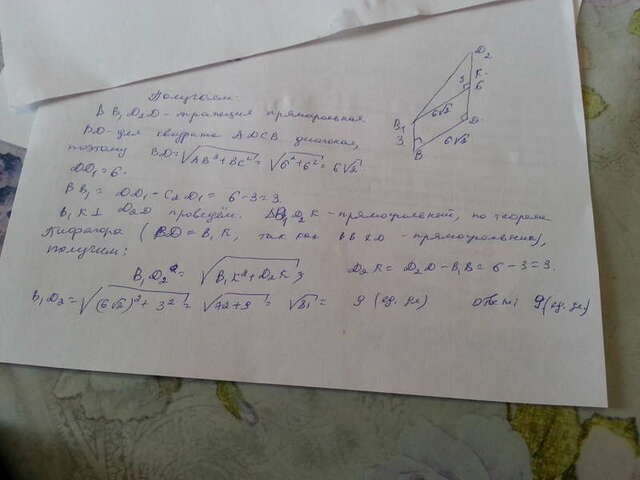 Получаем:
BB₁D₂D - трапеция прямоугольная
BD - для квадрата ADCB диагональ,
поэтому BD = √AB²+BC² = √6²+6² = 6√2
DD₁ = 6.
BB₁ = DD₁ - C₂D₁ = 6 - 3 = 3
B₁K ⊥ D₂D проведём. ΔB₁D₂K - прямоугольный, по теореме
Пифагора (BD = B₁K, так как - прямоугольник),
получим:
B₁D₂ = √B₁K²+D₂K² D₂K = D₂D - B₁B = 6 - 3 = 3.
B₁D₂ = √(6√2)²+3² = √72+9 = √81 = 9 (ед. ) ответ: 9 (ед. )
D₂
3 K
6
B₁ 6√2
D
3 6√2
B